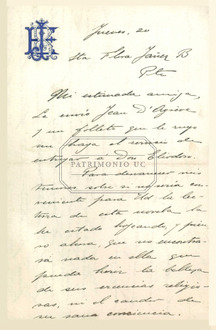 Jueves, 20
Sta Flora Yáñez B
Pte
Mi estimada amiga,
Le envío Jean D'Agrève
y un folleto que le ruego
me haga el servicio de
entregar a Don Eliodoro.
Para demorar mis
PATRIMONIO UC
para Ud la lec
tura de esta novela la
he estado hojeando, y
ahora, que no encontra
nada en ella que
pueda herir la belleza
de sus creencias religio
sas, ni el candor de
su sana conciencia.